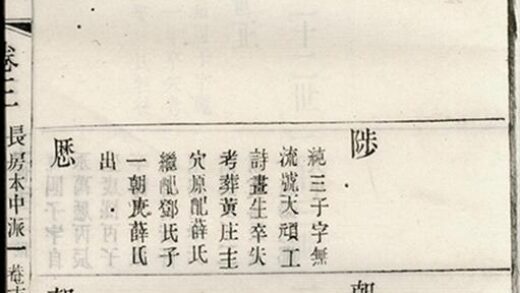 陟
純三子字無
流號大頑工
詩畫生卒失
考葬黄庄主
穴原配薛氏
繼配鄧氏子
一朝庚薛氏
出
厯
卷三
長房木中派一